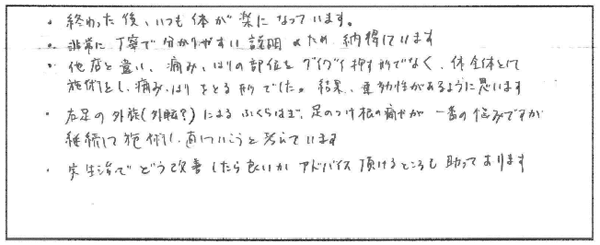 ・終わった後、いつも体が楽になっています。
・非常に丁寧で分かりやすい説明のため納得しています
・他店と違い、痛み、はりの部位をグイグイ押す形でなく、体全体として
施術をし、痛み、はりをとる形でした。結果、連動性があるように思います
・左足の外旋(外転?)によるふくらはぎ、足のつけ根の痛みが一番の悩みですが
継続して施術し、直していこうと考えています
・実生活でどう改善したら良いかアドバイス頂けるところも助かっております